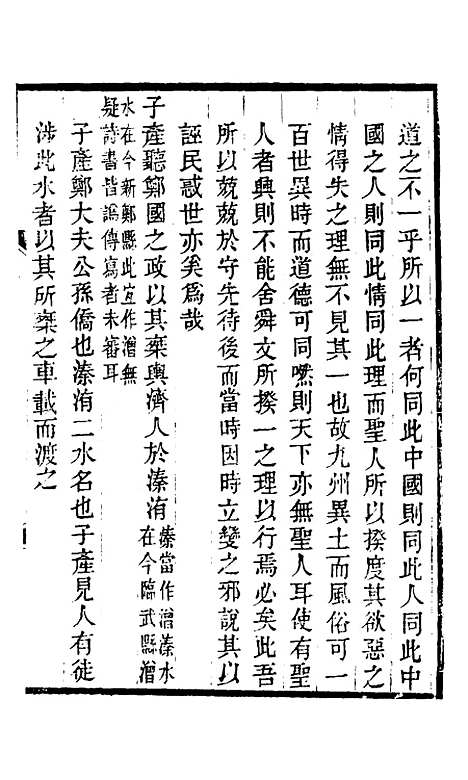 道之不一乎所以一者何同此中國則同此人同此中
國之人則同此情同此理而聖人所以揆度其欲惡之
情得失之理無不見其一也故九州異土而風俗可一
百世異時而道德可同嘫則天下亦無聖人耳使有聖
人者興則不能舍舜文所揆一之理以行焉必矣此吾
所以兢兢於守先待後而當時因時立變之邪說其以
誣民惑世亦奚爲哉
子產聽鄭國之政以其椉輿濟人於溱洧
溱當作潧溱水
在今臨武縣潧
水在今新鄭縣此宜作潧無
疑詩書皆譌傳寫者未審耳
子產鄭大夫公孫僑也溱洧二水名也子產見人有徒
涉此水者以其所椉之車載而渡之